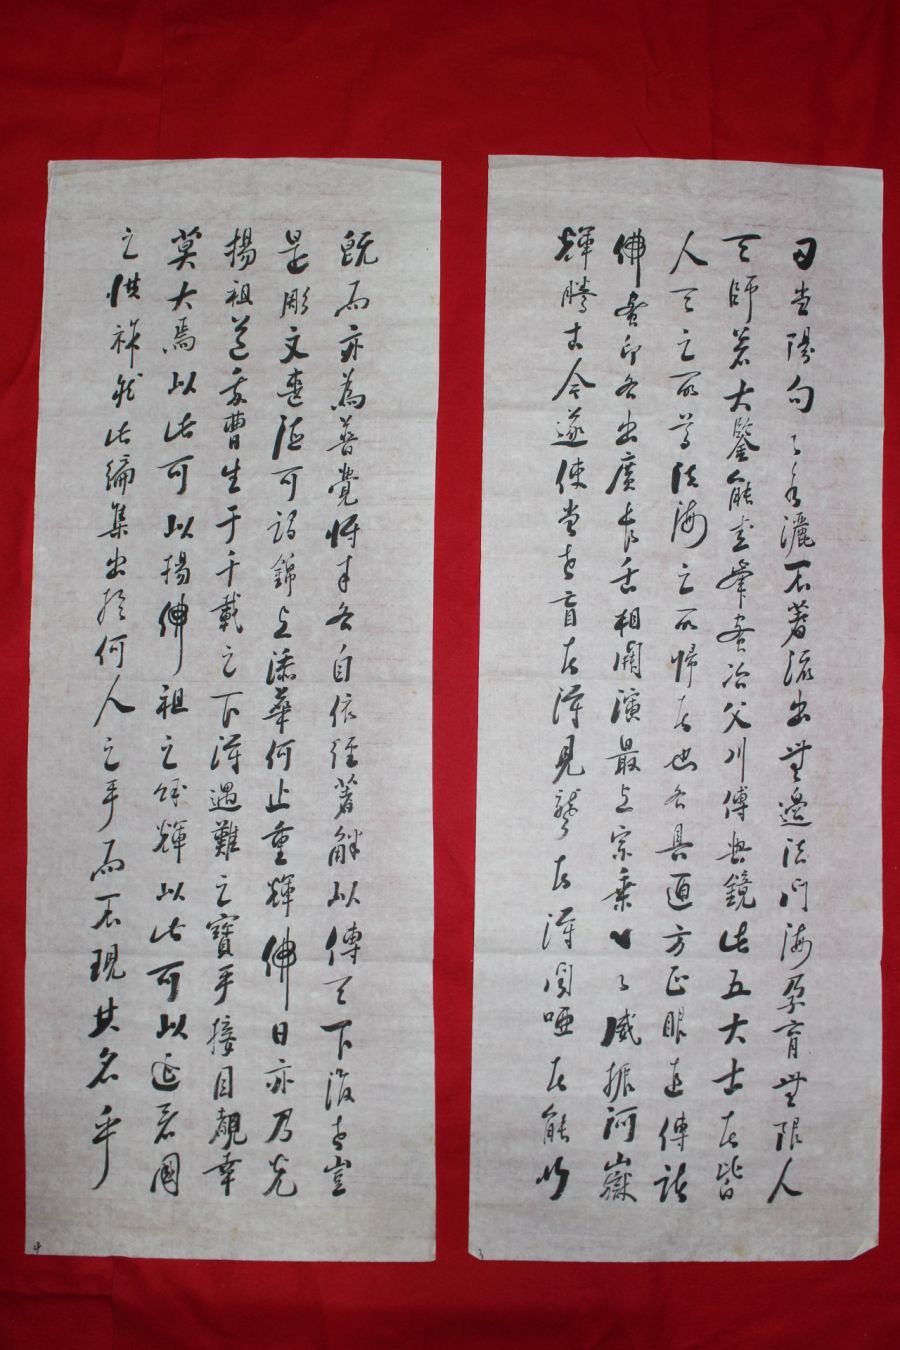 刃當陽句々水灑不著流出無邊法門海孕育無限人
天師若大鑒能圭峯密冶父川傅與鏡此五大士者皆
人天之所尊法海之所歸者也各具通方正眼直傳諸
佛密印各出廣長舌相開演最上宗乘一々威振河嶽
輝騰古今遂使當世盲者得見聾者得聞啞者能
3
既而亦為普覺將來各自依經著解以傳天下後世豈
是彫文喪德可謂錦上添華何止重輝佛日亦乃光
揚祖道我曹生于千載之下得遇難之寶手接目覩幸
莫大焉以此可以揚佛祖之餘輝以此可以延君國
之洪祚然此編集出於何人之手而不現其名乎
4